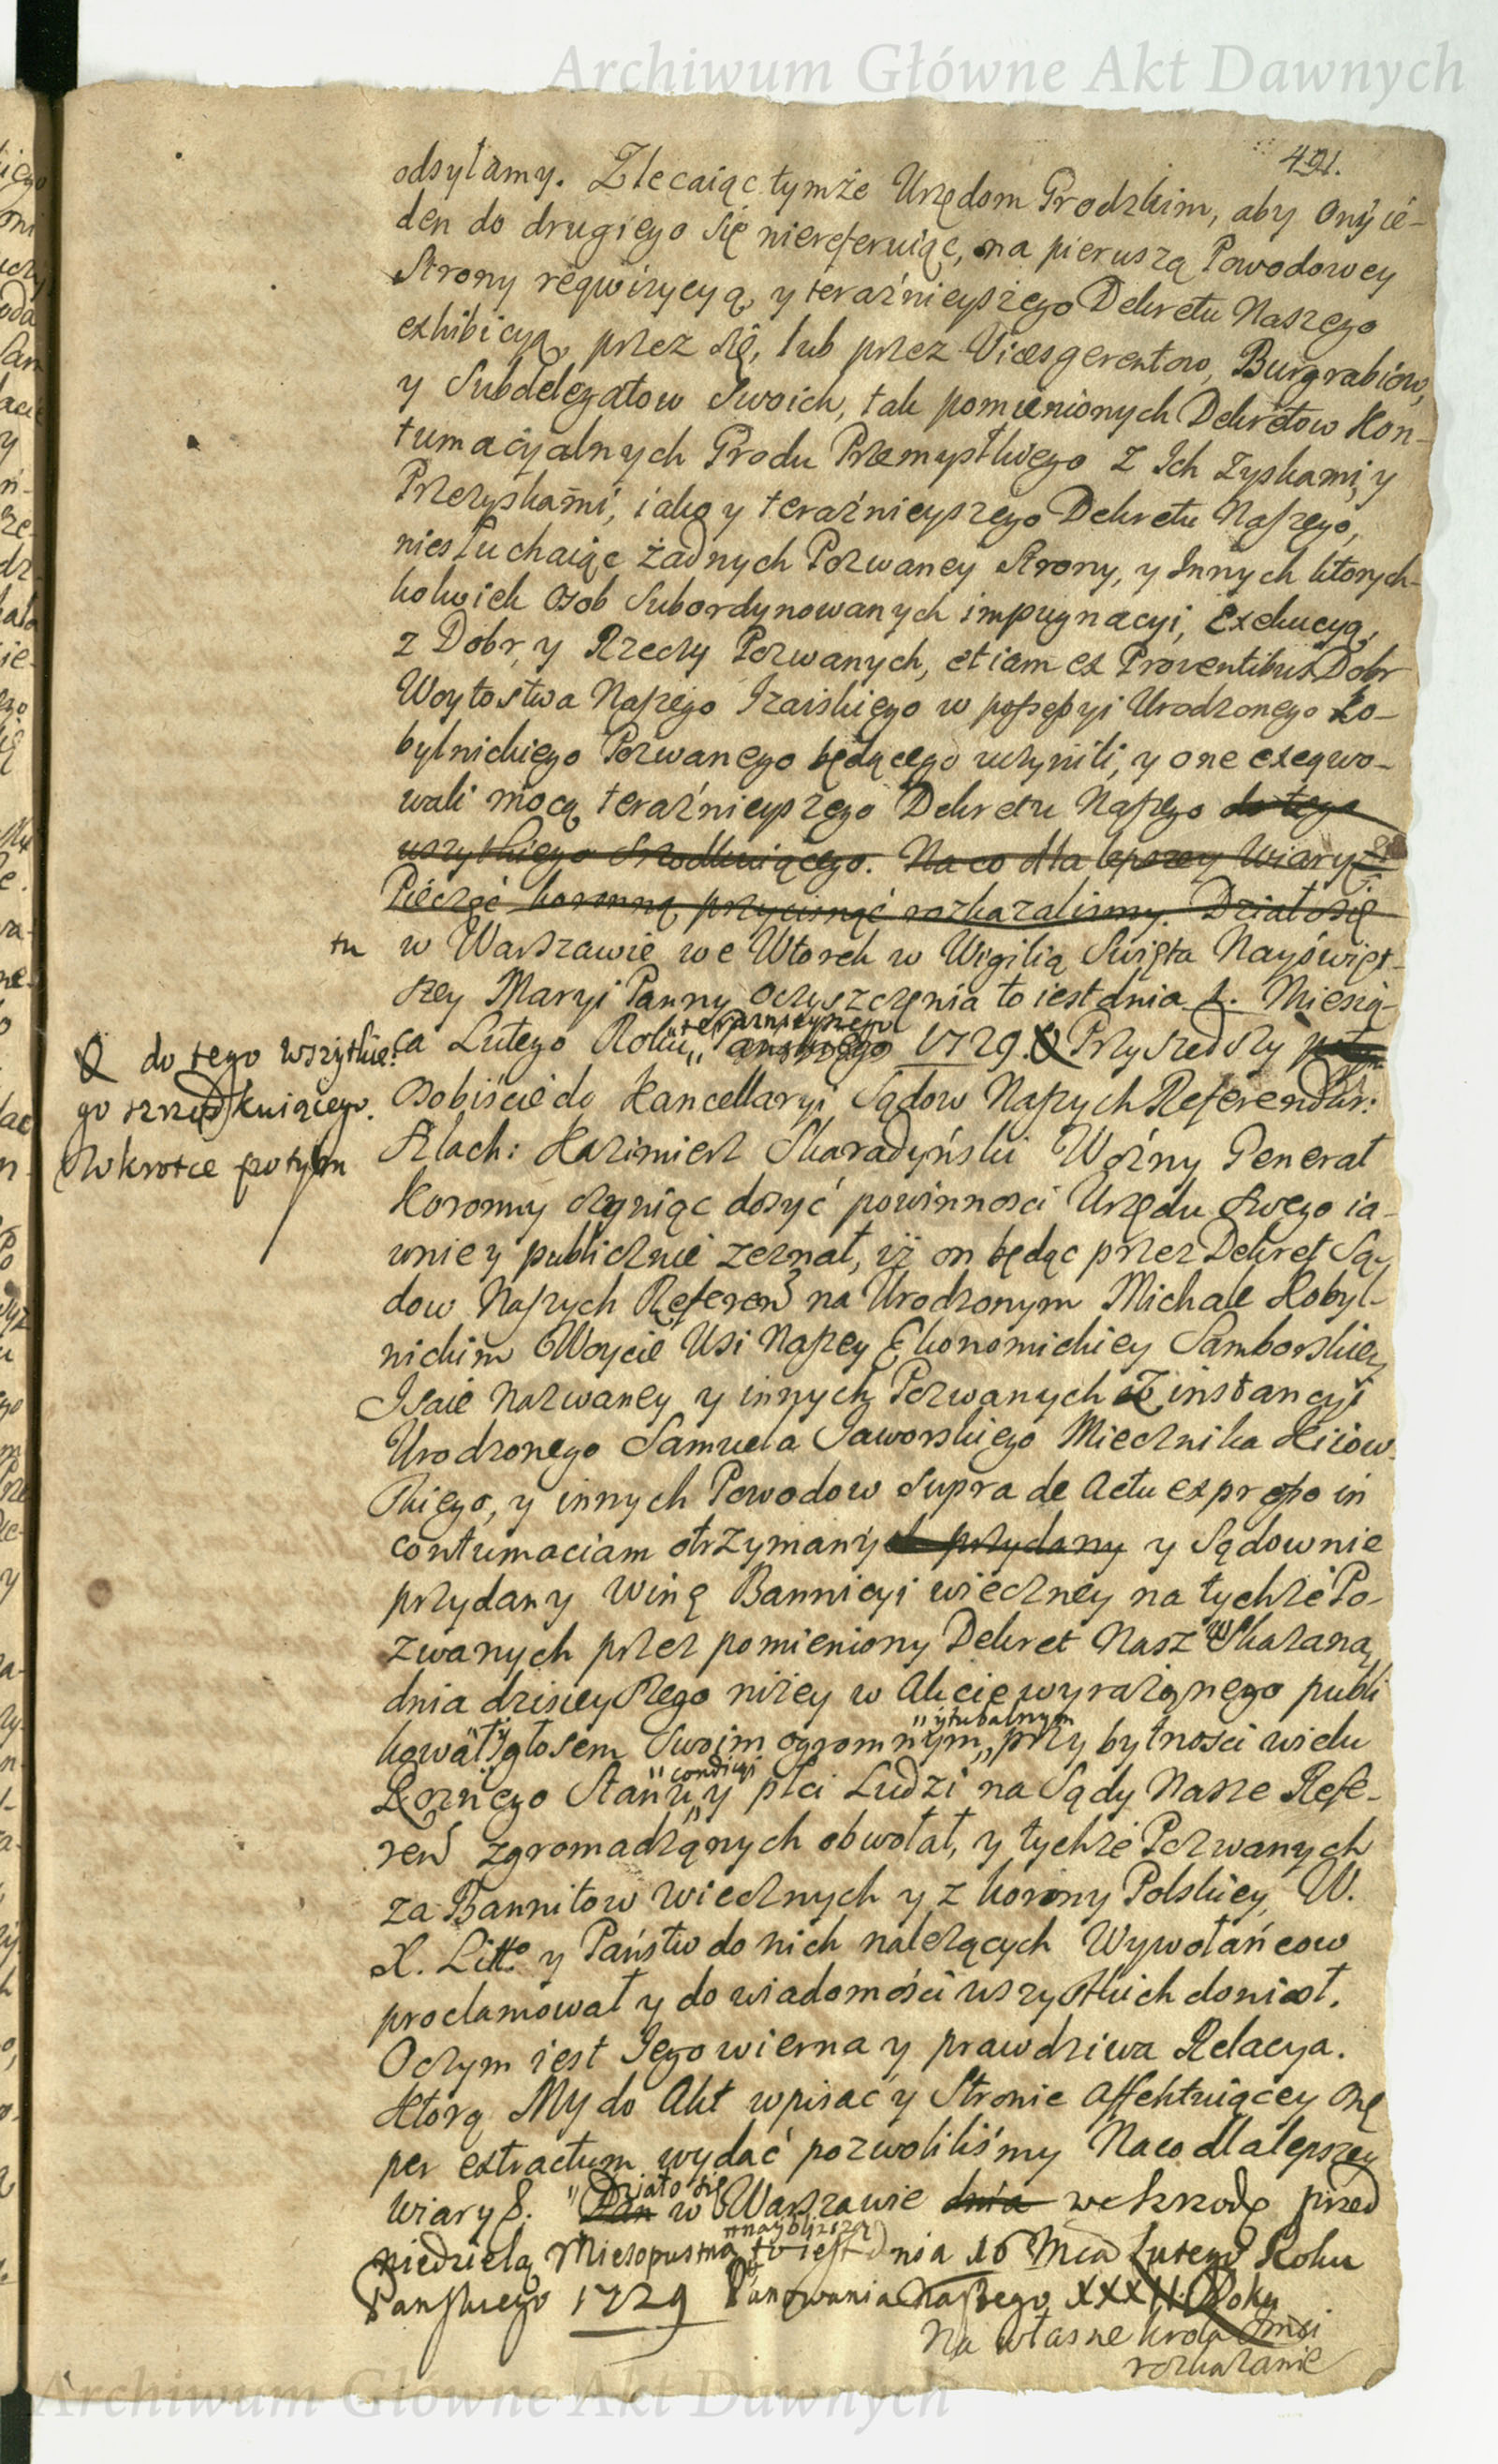 Archiwum Główne Akt Dawnych
491.
odsyłamy. Zlecaiąc tymże Urzędom Grodzkim, aby Oni ie-
den do drugiego się niereferuiąc, na pierwszą Powodowey
Strony reqwizycyą, y teraźnieyszego Dekretu Naszego
exhibicyą, przez się, lub przez Vicesgerentow, Burgrabiow,
y Subdelegatow Swoich, tak pomienionych Dekretow Kon-
tumacyalnych Grodu Przemyslkiego z Ich Zyskami, y
Przezyskami, iako y teraźnieyszego Dekretu Naszego,
niesłuchaiąc żadnych Pozwaney Strony, y Innych ktorych-
kolwiek Osob Subordynowanych impugnacyi, Exekucyą,
z Dobr, y Rzeczy Pozwanych, etiam ex Proventibus Dobr
Woytostwa Naszego Izaiskiego w possessyi Urodzonego Ko-
bylnickiego Pozwanego będącego uczynili, y one exeqwo-
wali mocą teraźnieyszego Dekretu Naszego do tego
wszytkiego Srzodkuiącego. Na co dla lepszey Wiary
Pieczęć koronną przycisnąć rozkazalismy. Działo się
tu w Warszawie we Wtorek w Wigilią Swięta Nayświęt-
szey Maryi Panny Oczyszczenia to iest dnia 1. Miesią-
ca Lutego Roku „teraznieyszego Pańskiego 1729. Przyszedszy
do tego wszytkie-
go srzodkuiącego.
Wkrotce potym
Osobiscie do Kancellaryi Sądow Naszych Referendar:
Szlach: Kazimierz Skaradyński Woźny Generał
Koronny czyniąc dosyć powinnosci Urzędu swego ia-
wnie y publicznie zeznał, iż on będąc przez Dekret Są-
dow Naszych Referen na Urodzonym Michale Kobyl-
nickim Woycie Wsi Naszey Ekonomickiey Samborskiey
Isaie nazwaney y innych Pozwanych z instancyi
Urodzonego Samuela Jaworskiego Miecznika Kiiow-
skiego, y innych Powodow supra de actu expresso in
contumaciam otrzymany przydany y Sądownie
przydany Winę Bannicyi wieczney na tychże Po-
zwanych przez pomieniony Dekret Nasz wskazaną
dnia dzisieyszego niżey w Akcie wyrażonego publi
kował głosem Swoim ogromnym „ytubalnym„ przy bytności wielu
Roznego Stanu, „condicyi„ y płci Ludzi na Sądy Nasze Refe-
ren zgromadzonych obwołał, y tychże Pozwanych
za Bannitow wiecznych y z korony Polskiey, W.
X. Litto y Państw do nich należących Wywołańcow
proclamował y do wiadomości wszystkich doniosł.
Oczym iest Jego wierna y prawdziwa Relacya.
Ktorą My do Akt wpisać y Stronie affektuiącey onę
per extractum wydać pozwoliliśmy Na co dla lepszey
wiary „Działo się Dan w Warszawie dnia we Srzodę przed
niedzielą Miesopustną „naybliższą to iest Dnia 16 Mca Lutego Roku
Pańskiego 1729 Panowania Naszego XXXII Roku
Na własne krola Jmci
rozkazanie
Archiwum Główne Akt Dawnych